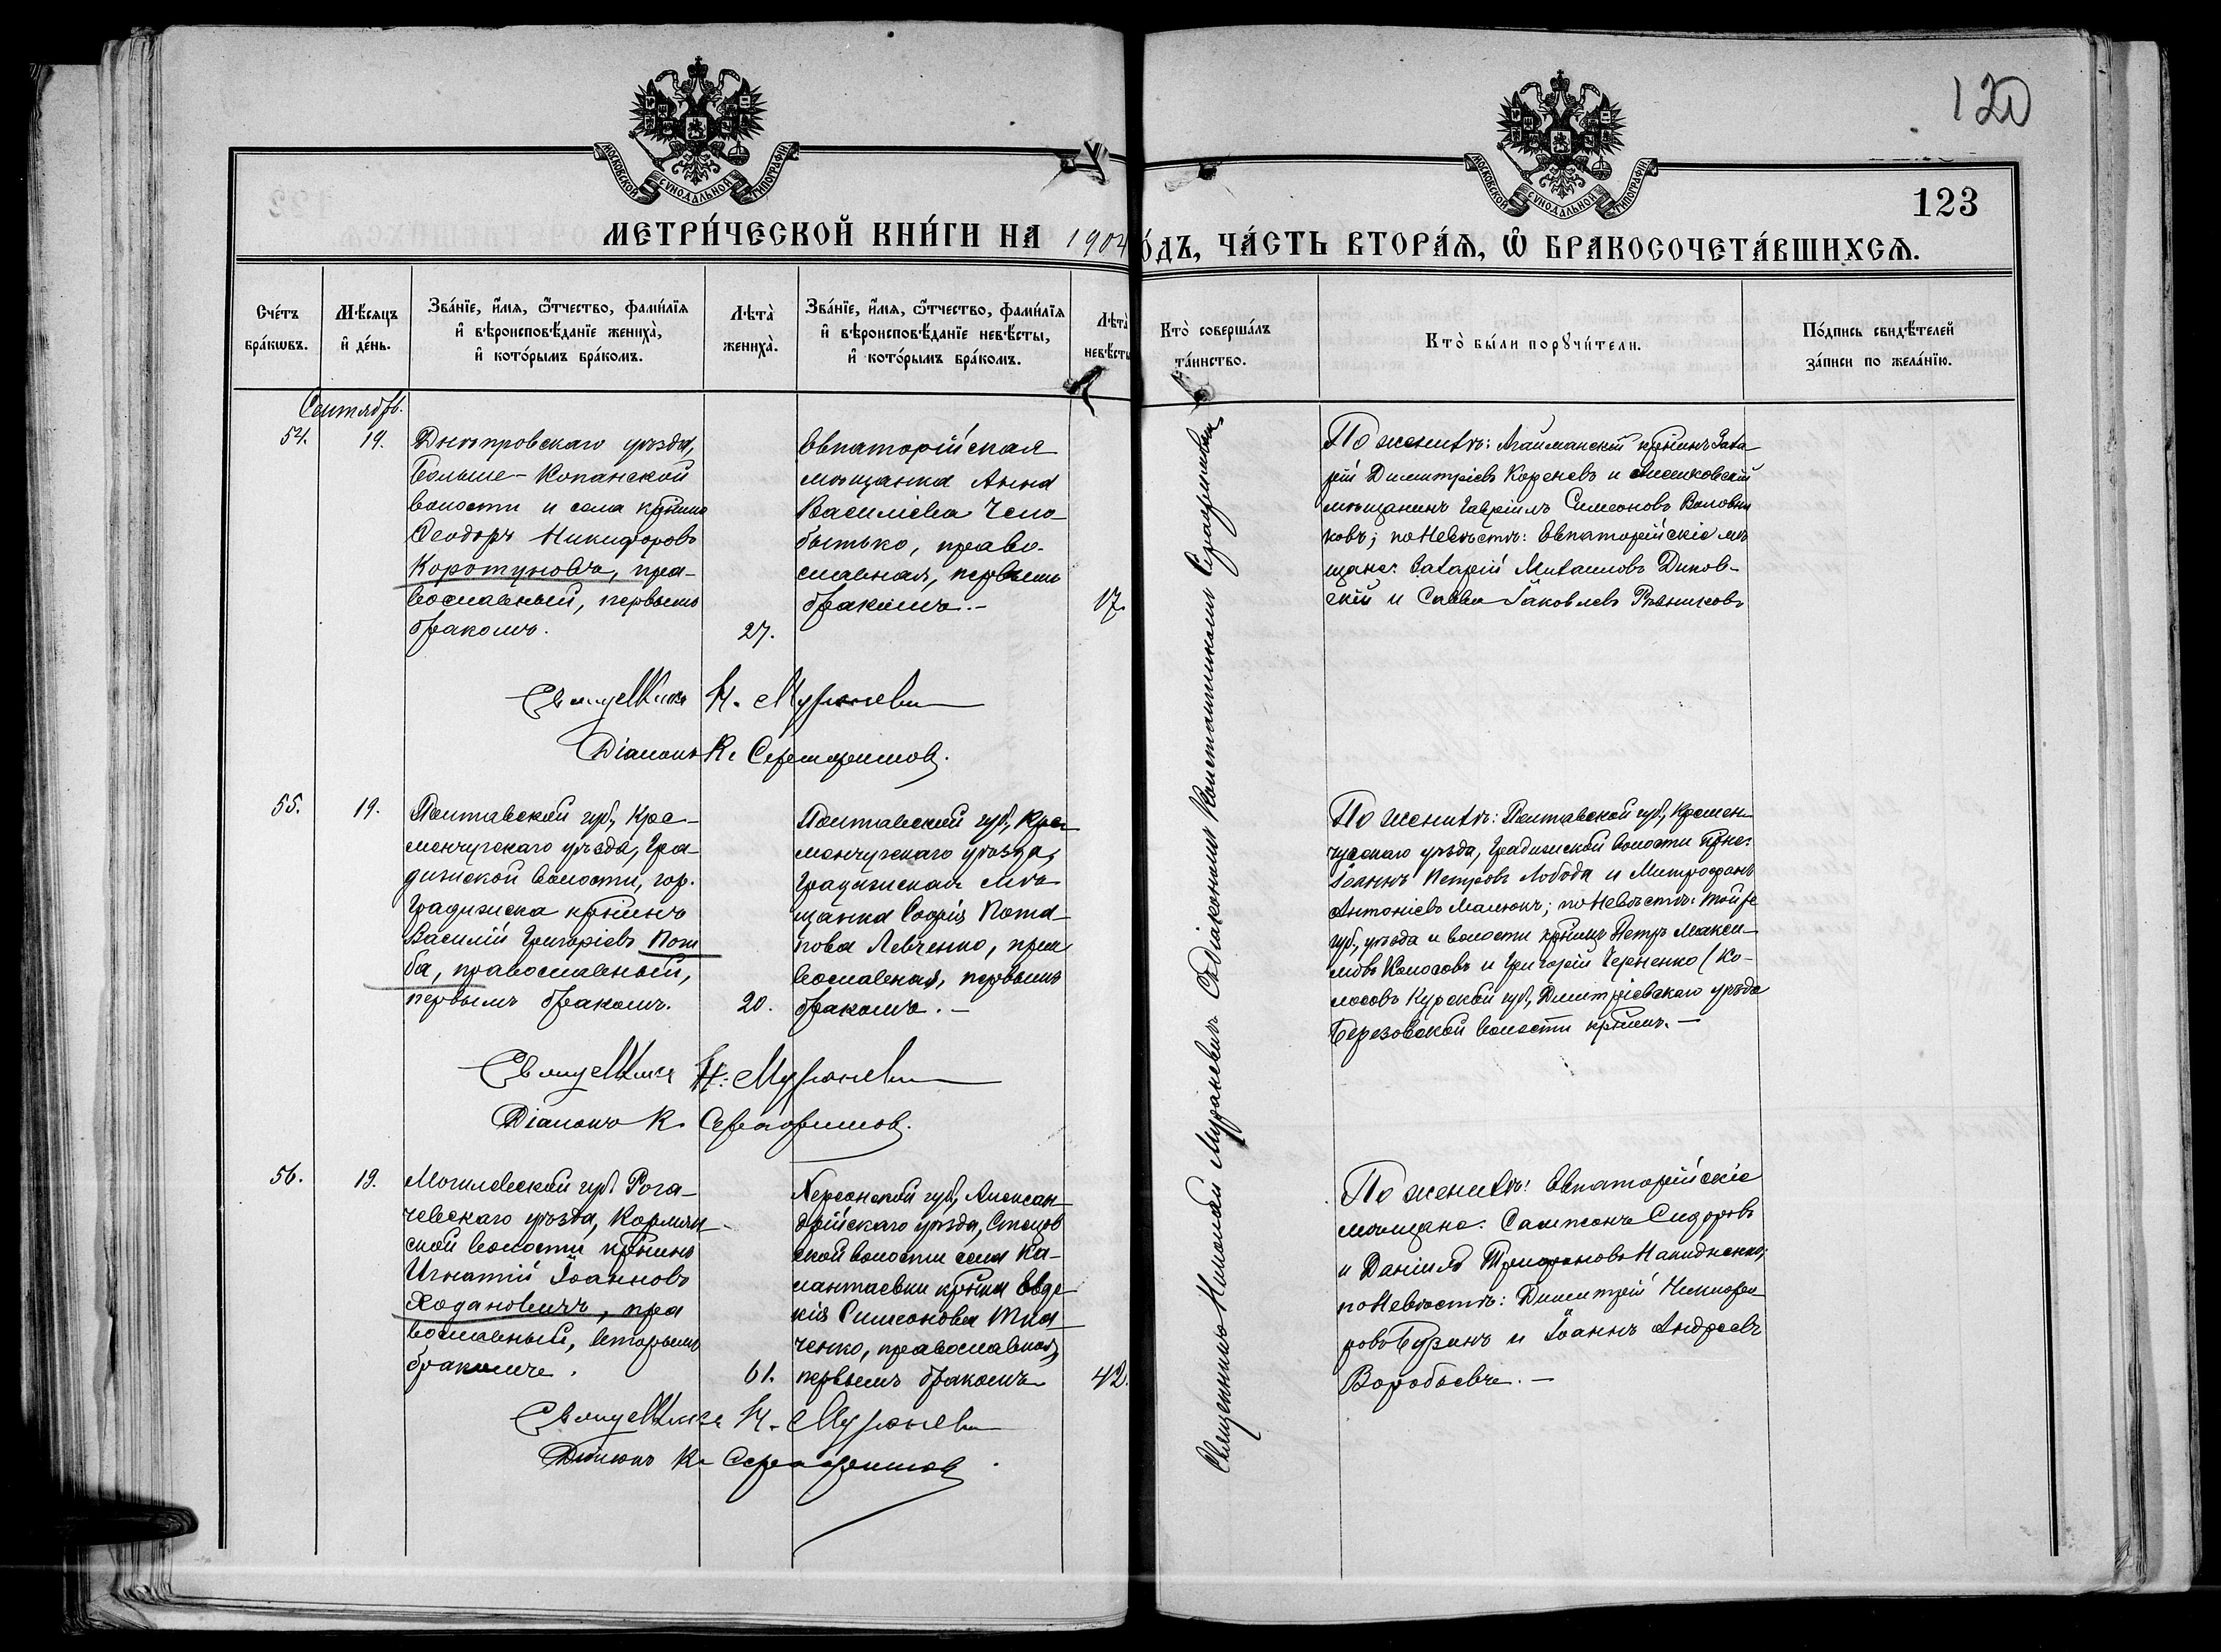 120
123
МОСКОВСКОЙ СѴНОДАЛЬНОЙ ТИПОГРАФІИ
МОСКОВСКОЙ СѴНОДАЛЬНОЙ ТИПОГРАФІИ
МЕТРИ́ЧЕСКОЙ КНИ́ГИ НА 1904 ГО́ДЪ, ЧА́СТЬ ВТОРА́Я, Ѿ БРАКОСОЧЕТА́ВШИХСЯ.
Сче́тъ
бра́кѡвъ.
Мѣ́сяцъ
и҆ де́нь.
Зва́нїе, и҆́мя, ѻ҆́тчество, фами́лїя
и҆ вѣроисповѣ́данїе жениха̀,
и҆ кото́рымъ бра́комъ.
Лѣта̀
жениха̀.
Зва́нїе, и҆́мя, ѻ҆́тчество, фами́лїя
и҆ вѣроисповѣ́данїе невѣ́сты,
и҆ кото́рымъ бра́комъ.
Лѣта̀
невѣ́сты
Кто̀ соверша́лъ
та́инство.
Кто̀ бы́ли порꙋчи́тели.
По́дпись свидѣ́телей
за́писи по жела́нїю.
Сентябрь.
54.
19.
Днѣпровскаго уѣзда,
Больше-Копанской
волости и села крѣнинъ
Ѳеодоръ Никифоровъ
Коротуновъ, пра-
вославный, первымъ
бракомъ.
27.
Евпаторійская
мѣщанка Анна
Василіева Чело-
бытько, право-
славная, первымъ
бракомъ.-
17.
По женихѣ: крѣнинъ Заха
рій Димитріевъ Кореневъ и
мѣщанинъ Гавріилъ Симеоновъ Воловни
ковъ; по невѣстѣ: Евпаторійскіе мѣ
щане: Захарій Михаиловъ Динов-
скій и Савва Іаковлевъ
Священникъ Николай Мураневичъ съ діакономъ Константиномъ Серафимовымъ
Н. Мураневи
Діаконъ К. Серафимовъ.
55.
19.
Полтавской губ., Кре-
менчугскаго уѣзда, Гра-
дижской волости, гор.
Градижска крѣнинъ
Василій Григоріевъ
ба, православный,
первымъ бракомъ.
20.
Полтавской губ., Кре-
менчугскаго уѣзда,
Градижская мѣ-
щанка Софія Пота-
пова Левченко, пра-
вославная, первымъ
бракомъ.-
По женихѣ: Полтавской губ., Кремен-
чугскаго уѣзда, Градижской волости крѣне:
Іоаннъ Петровъ Лобода и Митрофанъ
Антоніевъ Малюкъ; по невѣстѣ: той же
губ., уѣзда и волости крѣнинъ Петръ Макси-
мовъ Колосовъ и Григорій Черненко (Ко-
лосовъ Курской губ., Димитріевскаго уѣзда
Березовской волости крѣнинъ.-
Н. Мураневи
Діаконъ К. Серафимовъ.
56.
19.
Могилевской губ. Рога-
чевскаго уѣзда, Кормян-
ской волости крѣнинъ
Игнатій Іоанновъ
Ходановичъ, пра
вославный, вторымъ
бракомъ.
61.
Херсонской губ., Алексан-
дрійскаго уѣзда, Стецов
ской волости села Ка-
лантаевки крѣнка Евдо
кія Симеонова Тка-
ченко, православная,
первымъ бракомъ
42.
По женихѣ: Евпаторійскіе
мѣщане: Сампсонъ Сидоровъ
и Даніилъ Трифоновъ
по невѣстѣ: Димитрій Никифо
ровъ Бузинъ и Іоаннъ Андреевъ
Воробьевъ.-
Н. Мураневи
Діаконъ К. Серафимовъ.